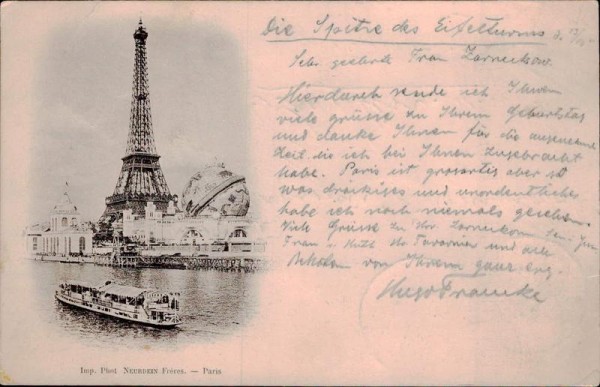 Die Spitze des Eifelturms d.
Sehr geehrte Frau Zarneckow.
Hierdurch sende ich Ihnen
viele grüsse zu Ihrem Geburtstag
und danke Ihnen für die angenehme
Zeit die ich bei Ihnen zugebracht
habe. Paris ist grosartig aber so
was dräckiges und unordentliches
habe ich noch niemals gesehen.
Viele Grüsse zu Hr Zarneckow
Frau und alle
von Ihrem ganz erg.
Hugo Francke
Imp. Phot. NEURDEIN Frères. — Paris